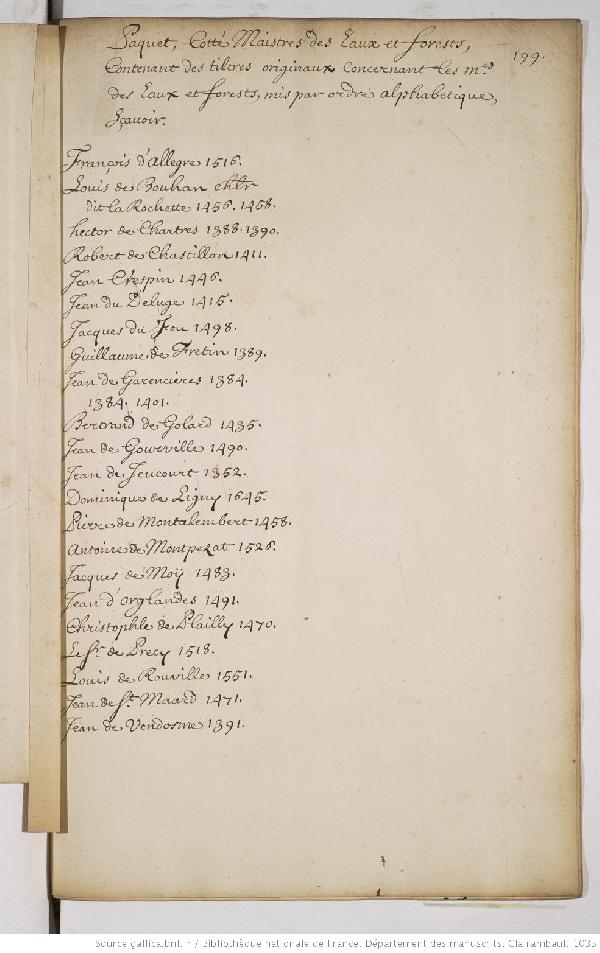 Paquet, Cotté Maistres des Eaux et forests,
199.
Contenant des tiltres originaux concernant les m.es
des Eaux et forests, mis par ordre alphabetique,
sçavoir.
François d'Allegre 1516.
Louis de Bouhan
dit la Rochette 1456. 1458.
hector de Chartres 1388. 1390.
Robert de Chastillon 1411.
Jean Crespin 1446.
Jean du Deluge 1415.
Jacques du Fou 1498.
Guillaume de Fretin 1389.
Jean de Garencieres 1384.
1384. 1401.
Bertrand de Golard 1435.
Jean de Gourville 1490.
Jean de Jeucourt 1352.
Dominique de Ligny 1645.
Pierre de Montalembert 1458.
Antoine de Montpezat 1526.
Jacques de Moÿ 1483.
Jean d'orglandes 1491.
Christophle de Plailly 1470.
Le Sr. de Precy 1518.
Louis de Rouville 1551.
Jean de St. Maard 1471.
Jean de Vendosme 1391.
Source gallica.bnf.fr / Bibliothèque nationale de France. Département des manuscrits. Clairambault 1035